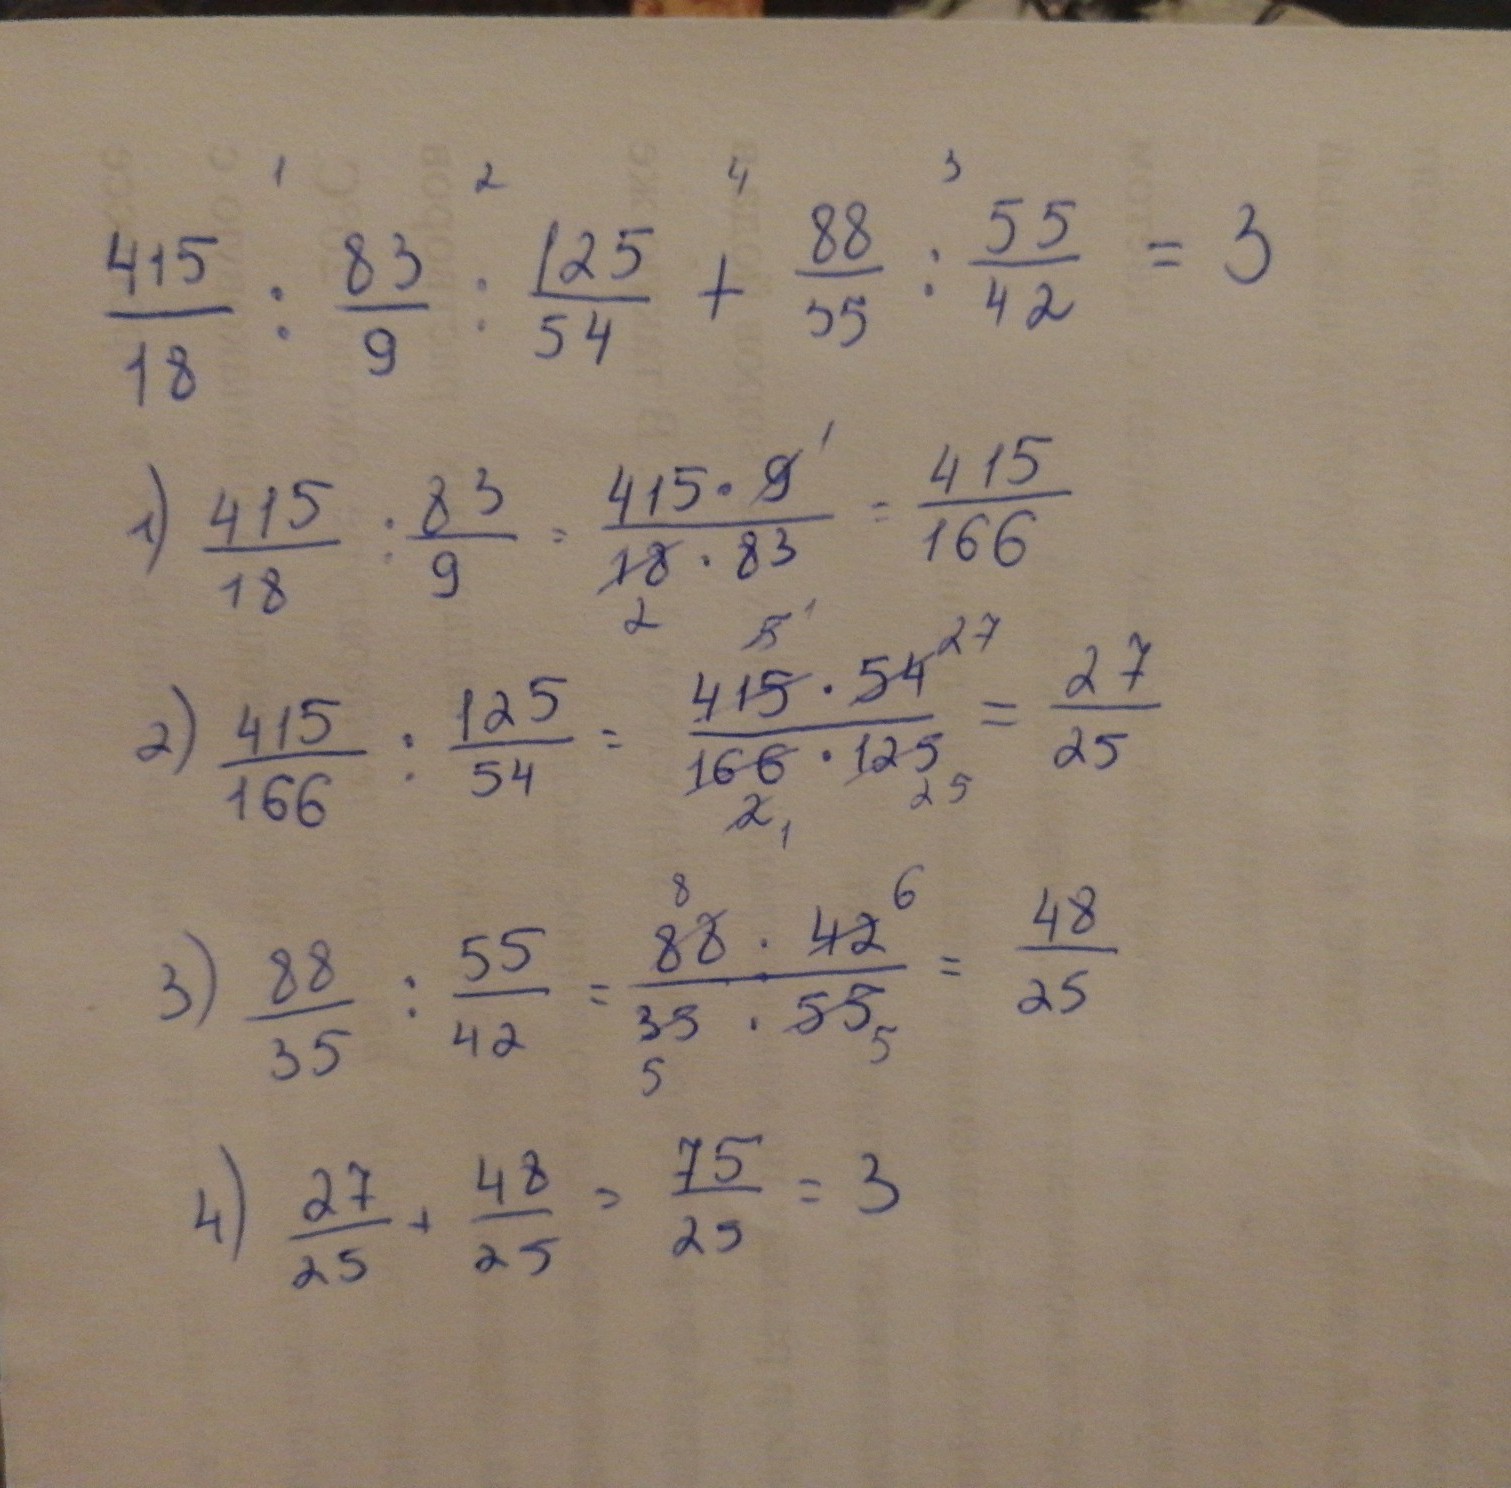 1 2 4 3
415/18 : 83/9 : 125/54 + 88/35 : 55/42 = 3
1) 415/18 : 83/9 = 415·9 1/18 2·83 = 415/166
2) 415/166 : 125/54 = 415 5 1·54 27/166 2 1·125 25 = 27/25
3) 88/35 : 55/42 = 88 8·42 6/35 5·55 5 = 48/25
4) 27/25 + 48/25 = 75/25 = 3